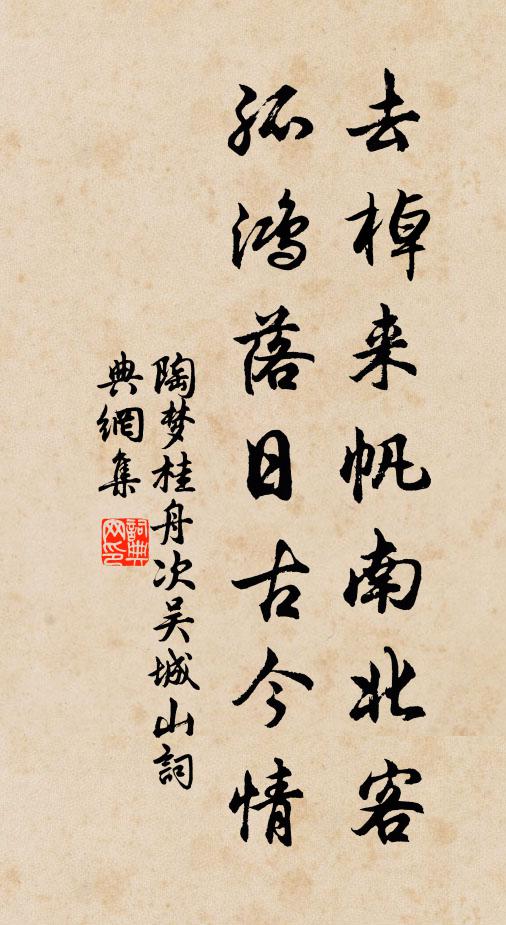 去棹来帆南北客
孤鸿落日古今情
陶梦桂舟次吴城山詞
典網集
詞典
网印